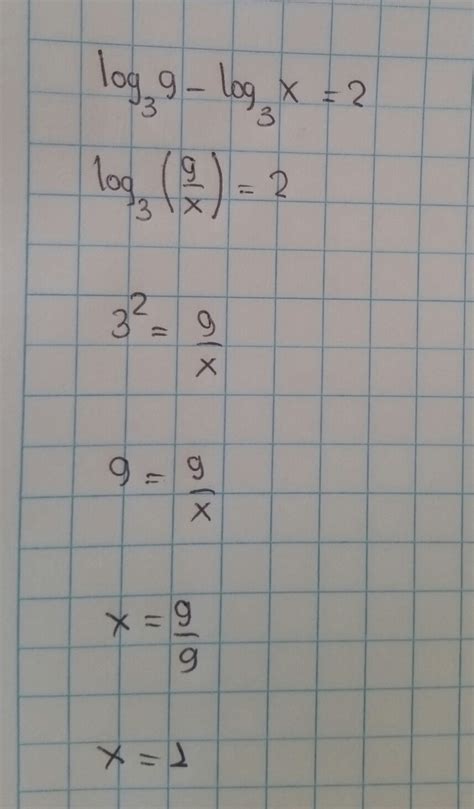 log₃9 - log₃x = 2
log₃(9/x) = 2
3² = 9/x
9 = 9/x
x = 9/9
x = 1